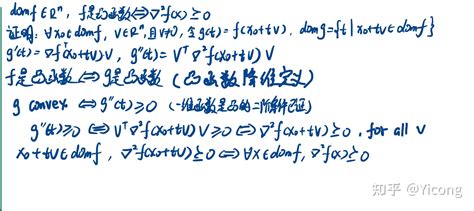 domf∈Rⁿ, f是凸函数⟺∇²f(x)≥0
证明: ∀x₀∈domf, v∈Rⁿ,且v≠0, 令g(t)=f(x₀+tv), domg={t|x₀+tv∈domf}
g'(t)=∇f(x₀+tv)V, g''(t)=Vᵀ∇²f(x₀+tv)V
f是凸函数⟺g是凸函数 (凸函数降维定义)
g convex ⟺g''(t)≥0 (一维函数是凸的二阶条件已证)
g''(t)≥0 ⟺Vᵀ∇²f(x₀+tv)V≥0⟺∇²f(x₀+tv)≥0, for all v
x₀+tv∈domf, ∇²f(x₀+tv)≥0⟺∀x∈domf, ∇²f(x)≥0
知乎 @Yicong